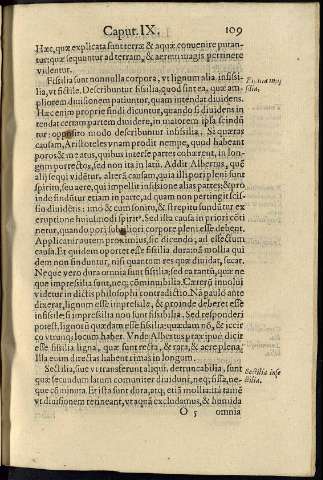 Caput. IX. 109
Hæc, quæ explicata sunt terræ & aquæ conuenire putan-
tur: quæ sequuntur ad terram, & aerem magis pertinere
videntur.
Fissilia sunt nonnulla corpora, vt lignum alia insissi-
lia, vt fictile. Describuntur fissilia, quod sint ea, quæ am-
pliorem diuisionem patiuntur, quam intendat diuidens.
Hæc enim proprie findi dicuntur, quando si diuidens in
tendat certam partem diuidere, in maiorem ipsa scindũ
tur: opposito modo describuntur insissilia. Si quæras
causam, Aristoteles vnam prodit nempe, quod habeant
poros & meatus, quibus inter se partes cohærent, in lon-
gum porrectos, sed non ita in latũ. Addit Albertus, quẽ
alij sequi videntur, alterã causam, quia illi pori pleni sunt
spiritu, seu aere, qui impellit insissione alias partes: & pro
inde finduntur etiam in parte, ad quam non pertingit scis-
sio diuidens: imò & cum sonitu, & strepitu fundũtur ex
eruptione huiusmodi spirit⁹. Sed illa causa in priori cõti
netur, quando pori subtiliori corpore pleni esse debent.
Applicari autem proximius, sic dicendo, ad effectum
causa. Et quidem oportet esse fissilia dura: nã mollia qui
dem non finduntur, nisi quantum res quæ diuidat, secat.
Neque vero dura omnia sunt fissilia: sed ea tantũ, quæ ne
que impresibilia sunt, neq; cõminuibilia. Cæterũ inuolui
videtur in dictis philosophi contradictio. Nã paulò ante
dixerat, lignum esse impresile, & proinde deberet esse
insissile si impresibilia non sunt fissibilia. Sed responderi
potest, lignorũ quædam esse fissilia: quædam nõ, & iccir
co vtrunq; locum habet. Vnde Albertus præcipuò dicit
esse fissilia ligna, quæ sunt recta, & rara, & aere plena.
Illa enim directas habent rimas in longum.
Sectilia, siue vt transferunt aliqui, detruncabilia, sunt
quæ secundum latum comuniter diuidunt, neq; fissa, ne-
que cõminuta. Et ista sunt dura, atq; etiã mollia: ita tamẽ
vt diuisionem teneant, vt aquã excludamus, & humida
O 5 omnia
Sectilia inse
ctilia.